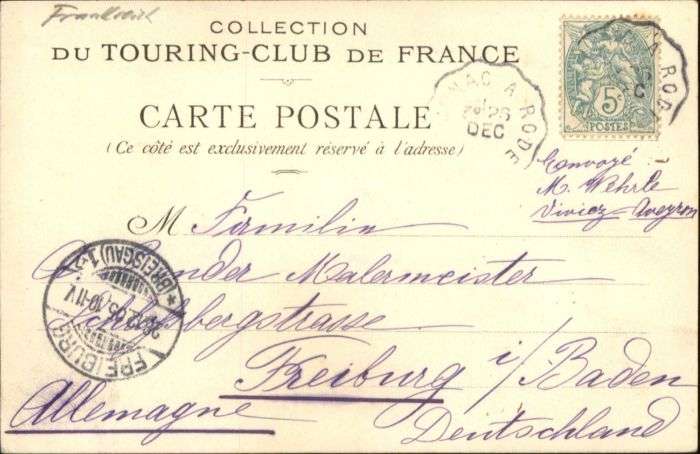 Frankreich
COLLECTION
DU TOURING-CLUB DE FRANCE
CARTE POSTALE
(Ce côté est exclusivement réservé à l'adresse)
NAC A RODE
26
DEC
A RODE
5c
POSTES
Convoyé
M. Wehrle
Viviez-Aveyron
M Familie
Malermeister
bergstrasse
Freiburg i/Baden
Allemagne
Deutschland
FREIBURG
28.12.05.10-11V.
* (BREISGAU) 1